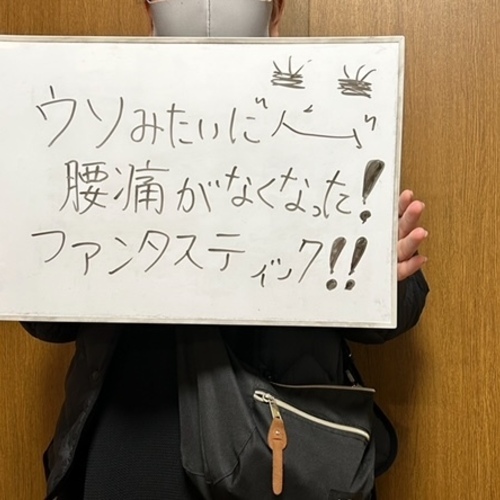 ウソみたいに
腰痛がなくなった!
ファンタスティック!!